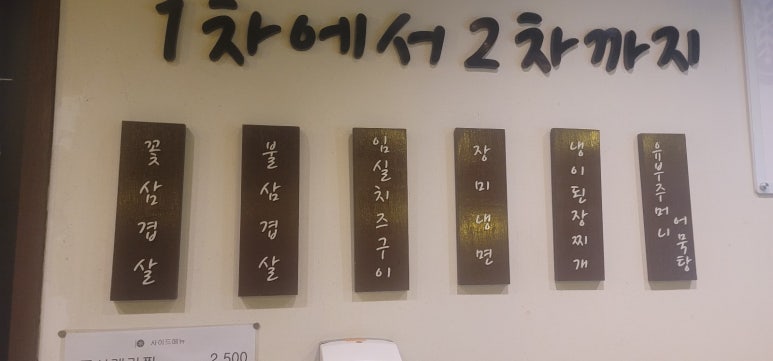 1차에서 2차까지
꽃삼겹살
불삼겹살
임실치즈구이
장미냉면
냉이된장찌개
유부주머니
어묵탕
사이드메뉴
2,500